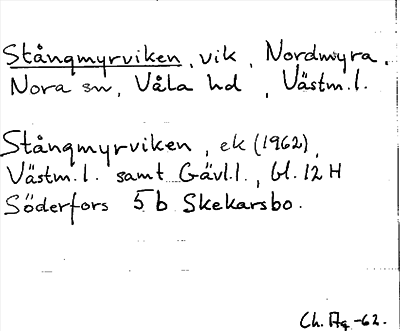 Stångmyrviken, vik, Nordmyra,
Nora sn, Våla hd, Västm.l.
Stångmyrviken, ek (1962),
Västm.l. samt Gävl.l., bl. 12 H
Söderfors 5 b Skekarsbo.
Ch. Ag -62.